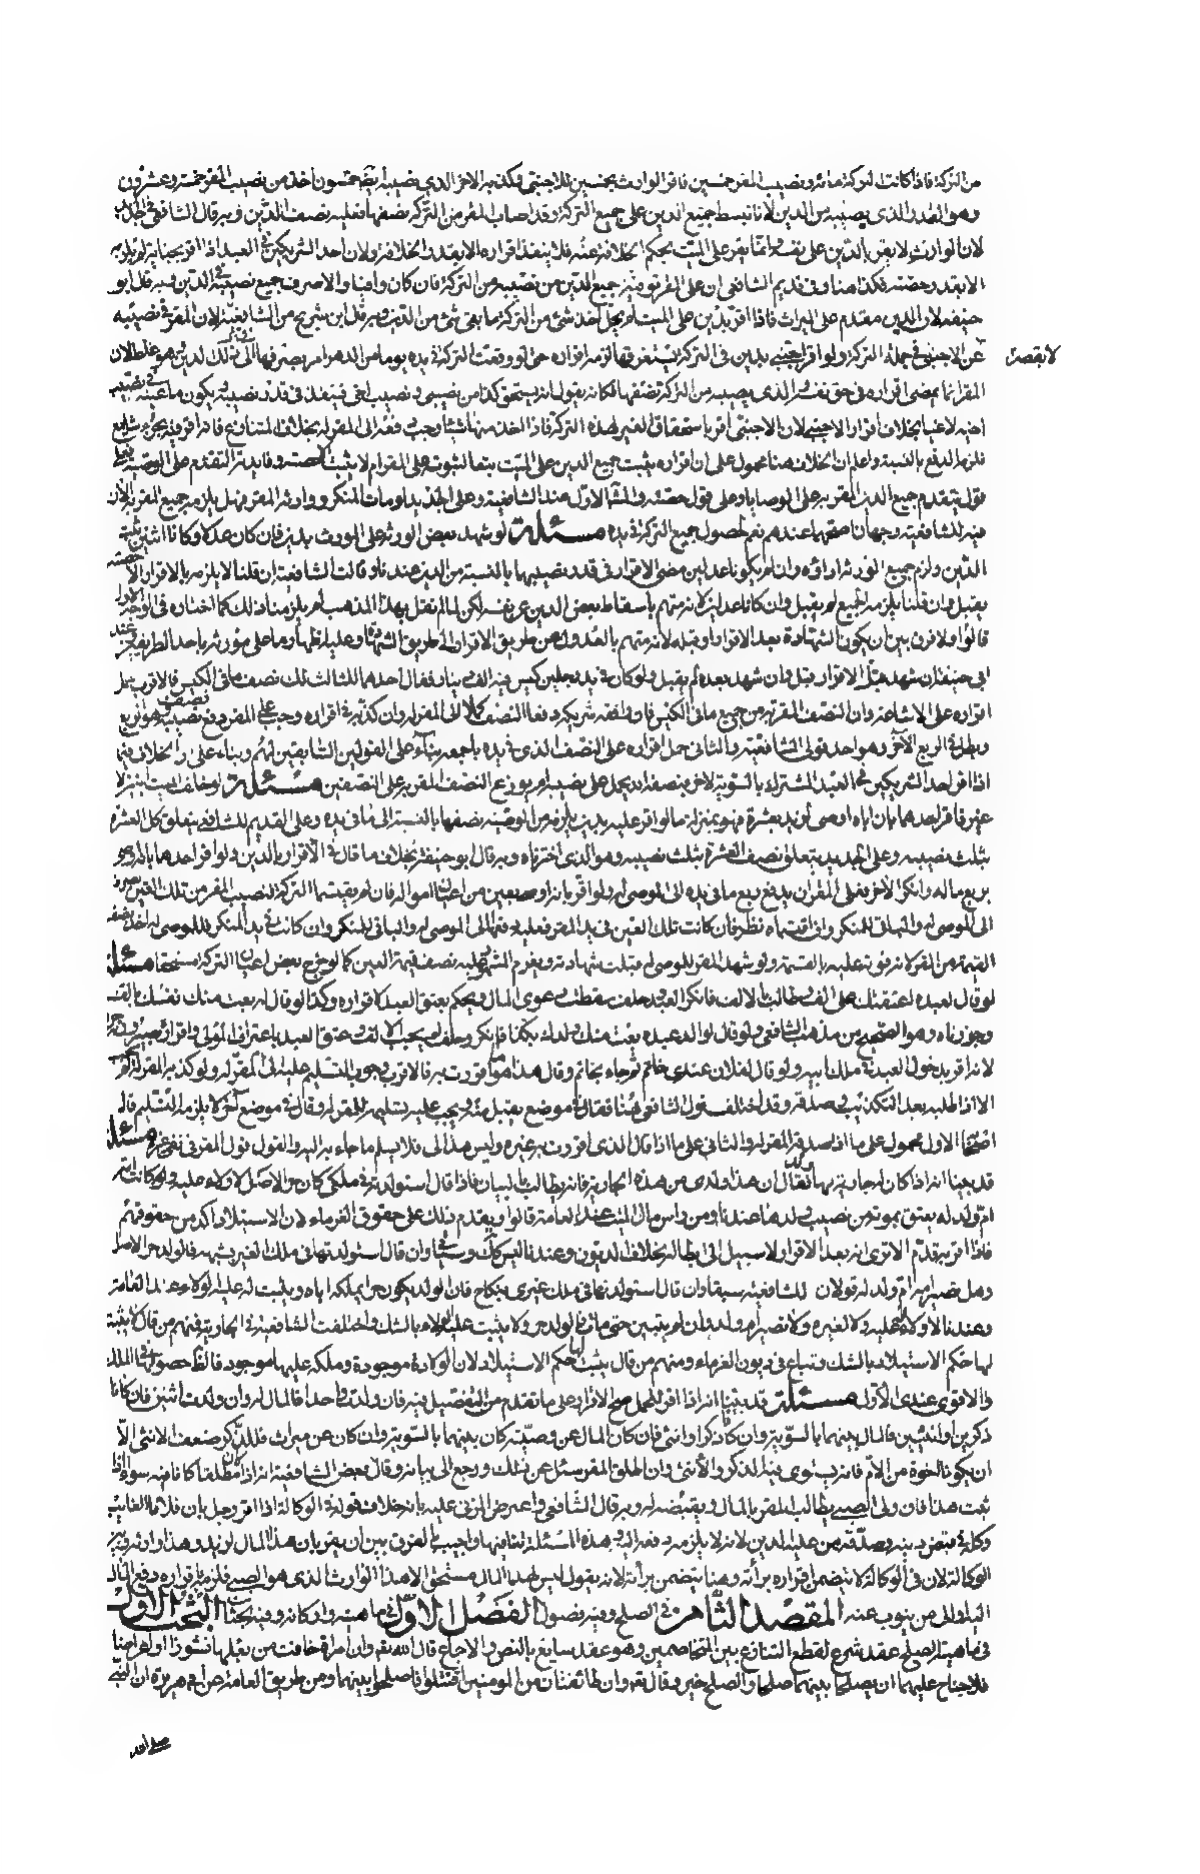 من التركة فاذا كانت التركة مائة ونصيب المقر خمسين فاقر الوارث بخمسين للاجنبي وكذبه الاخر الذي نصيبه ايضا خمسون اخذ من نصيب المقر خمسة وعشرون
وهو القدر الذي يصيبه من الدين لانا نبسط جميع الدين على جميع التركة وقد اصاب المقر من التركة نصفها فعليه نصف الدين وبه قال الشافعي في
لان الوارث لا يقر بالدين على نفسه وانما يقر على الميت بحكم الخلافة عنه فلا ينفذ اقراره الا بقدر الخلافة ولان احد الشريكين في العبد اذا اقر بجناية لم يلزمه
الا بقدر حصته فكذا هنا وفي قديم الشافعي ان على المقر توفية جميع الدين من نصيبه من التركة فان كان وافيا والا صرف جميع نصيبه في الدين وبه قال ابو
حنيفة لان الدين مقدم على الميراث فاذا اقر بدين على الميت لم يحل اخذ شئ من التركة ما بقي شئ من الدين وبه قال ابن شريح من الشافعية لان المقر في نصيبه
لا يقصر
عن الاجنبي في جملة التركة ولو اقر اجنبي بدين في التركة يستغرقها لزمه اقراره حتى لو وقعت التركة في يده يوما من الدهر امر بصرفها الى ذلك الدين وهو غلط لان
المقر انما يمضي اقراره في حق نفسه والذي يصيبه من التركة نصفها فكانه يقول انه يستحق كذا من نصيبي ونصيب اخي فينفذ في قدر نصيبه ويكون ما عينه في نصيب
اخيه لاغيا بخلاف اقرار الاجنبي لان الاجنبي اقر باستحقاق الغير لهذه التركة فاذا اخذ منها شيئا وجب دفعه الى المقر له بخلاف المتنازع فاذا اقر فيه بجزء شايع
فلزمه الدفع بالنسبة واعلم ان الخلاف هنا محمول على ان اقراره يثبت جميع الدين على الميت تبعا لثبوته على المقر ام لا يثبت الا حصته وفايدته التقدم على الوصية
فيه للشافعية وجهان اصحهما عندهم نعم لحصول جميع التركة في يده مسئلة لو شهد بعض الورثة على المورث بدين فان كان عدلا وكانا اثنين ثبت
الدين ولزم جميع الورثة اداؤه وان لم يكونا عدلين مضى الاقرار في قدر نصيبهما بالنسبة من الدين عندنا وقالت الشافعية ان قلنا لا يلزمه بالاقرار الا حصته
يقبل وان قلنا يلزمه الجميع لم يقبل وان كانا عدلين لانه متهم باسقاط بعض الدين عن نفسه لكن لما لم نقل بهذا المذهب لم يلزمنا ذلك كما اختاره في الوجه الاول
قالوا ولا فرق بين ان يكون الشهادة بعد الاقرار او قبله لانه متهم بالعدول عن طريق الاقرار الى طريق الشهادة وعليه اظهار ما على مورثه باحد الطريقين وعند
ابي حنيفة ان شهد قبل الاقرار قبل وان شهد بعده لم يقبل ولو كان في يد رجلين كيس فيه الف دينار فقال احدهما لثالث لك نصف ما في الكيس فالاقرب حمل
اقراره على الاشاعة وان النصف المقر به من جميع ما في الكيس فان وافقه شريكه دفعا النصف كملا الى المقر له وان كذبه في اقراره وجب على المقر دفع نصف نصيبه وهو الربع
اذا اقر احد الشريكين في العبد المشترك بالسوية لاخر بنصفه هل يحمل على نصيبه ام يوزع النصف المقر به على النصفين مسئلة لو خلف الميت ابنين لا
غير فاقر احدهما بان اباه اوصى لزيد بعشرة فهو بمنزلة ما لو اقر عليه بدين يلزمه من الوصية نصفها بالنسبة الى ما في يده وعلى القديم للشافعي يتعلق كل العشرة
بثلث نصيبه وعلى الجديد يتعلق نصف العشرة بثلث نصيبه وهو الذي اخترناه وبه قال ابو حنيفة بخلاف ما قال في الاقرار بالدين ولو اقر احدهما بالوصية
بربع ماله وانكر الاخر فعلى المقر ان يدفع ربع ما في يده الى الموصى له ولو اقر بانه اوصى بعين من اعيان امواله فان لم يقتسما التركة فنصيب المقر من تلك العين يصرف
الى الموصى له والباقي للمنكر وان اقتسماه نظر فان كانت تلك العين في يد المقر فعليه دفعها الى الموصى له والباقي للمنكر وان كانت في يد المنكر فللموصى له اخذ نصف
القيمة من المقر لانه فوته عليه بالقسمة ولو شهد المقر للموصى له قبلت شهادته ويغرم المشهود عليه نصف قيمة العين كما لو خرج بعض اعيان التركة مستحقا مسئلة
لو قال لعبده اعتقتك على الف وطالبه بالالف فانكر العبد وحلف سقطت دعوى المال ويحكم بعتق العبد لاقراره وكذا لو قال له بعت منك نفسك بالف
وجوزناه وهو الصحيح من مذهب الشافعي ولو قال لوالد عبده بعت منك ولدك بكذا فانكر وحلف لم يجب الالف وعتق العبد باعتراف المولى واقراره بصيرورته حرا
لانه اقر بدخول العبد في ملك ابيه ولو قال لفلان عندي خاتم ثم جاء بخاتم وقال هذا هو ما اقررت به فالاقرب وجوب التسليم عليه الى المقر له ولو كذبه المقر له لم يكن
الا اذا طلبه بعد التكذيب وصدقه وقد اختلف قول الشافعي هنا فقال في موضع يقبل منه ويجب عليه تسليمه للمقر له وقال في موضع آخر لا يلزمه التسليم قال
اصحابه الاول محمول على ما اذا صدقه المقر له والثاني على ما اذا قال الذي اقررت به غيره وليس هذا لي فلا يسلم ما جاء به اليه والقول قول المقر في نفي غيره مسئلة
قد بينا انه اذا كان له جارية لها ولد فقال ان هذا ولدي من هذه الجارية فانه يطالب بالبيان فاذا قال استولدته في ملكي كان حر الاصل لا ولاء عليه ولو كانت امه
ام ولد له يعتق بموته من نصيب ولدها عندنا ومن راس مال الميت عند العامة قالوا ويقدم ذلك على حقوق الغرماء لان الاستيلاد آكد من حقوقهم
فاذا اقر به قدم الا ترى انه بعد الاقرار لا سبيل الى ابطاله بخلاف الديون وعندنا ليس كك وسيأتي وان قال استولدتها في ملك الغير بشبهة فالولد حر الاصل
وهل تصير امه ام ولد له قولان للشافعية سبقا وان قال استولدتها في ملك غيري بنكاح فان الولد يكون حرا لملكه اباه ويثبت له عليه الولاء عند العامة
وعندنا لا ولاء عليه ولا لغيره ولا تصير ام ولد وان لم يتبين حتى مات فالولد حر ولا يثبت عليه الولاء بالشك واختلفت الشافعية في الجارية فمنهم من قال لا يثبت
لها حكم الاستيلاد بالشك وتباع في ديون الغرماء ومنهم من قال يثبت لها حكم الاستيلاد لان الولادة موجودة وملكه عليها موجود فالظاهر حصولها في الملك
والاقوى عندي الاول مسئلة قد بينا انه اذا اقر لحمل صح الاقرار على ما تقدم من التفصيل فيه فان ولدت واحدا فالمال له وان ولدت اثنين فان كانا
ذكرين او انثيين فالمال بينهما بالسوية وان كان ذكرا وانثى فان كان المال عن وصية كان بينهما بالسوية وان كان عن ميراث فللذكر ضعف الانثى الا
ان يكونا اخوة من الام فانه يستوي فيه الذكر والانثى وان اطلق المقر سئل عن ذلك ورجع الى بيانه وقال بعض الشافعية انه اذا كان مطلقا كانا فيه سواء اذا
ثبت هذا فان ولي الصبي يطالب المقر بالمال ويقبضه له وبه قال الشافعي واعترض المزني عليه بانه خلاف قوله في الوكالة اذا اقر رجل بان فلانا الغايب
وكله في قبض دينه وصدقه من عليه الدين لانه لا يلزمه دفعه اليه وهذه المسئلة تنافيها واجيب بالفرق بين ان يقر بان هذا المال لزيد وهذا وارثه وبين
الوكالة لان في الوكالة لا يتضمن اقراره براءته وهنا يتضمن براءته لانه يقول ليس لهذا المال مستحق الا هذا الوارث الذي هو الصبي فلزمه باقراره دفع المال
اليه او الى من ينوب عنه المقصد الثامن في الصلح وفيه فصول الفصل الاول في ماهيته واركانه وفيه بحثان البحث الاول
في ماهيته الصلح عقد شرع لقطع التنازع بين المتخاصمين وهو عقد سايغ بالنص والاجماع قال الله تعالى وان امراة خافت من بعلها نشوزا او اعراضا
فلا جناح عليهما ان يصلحا بينهما صلحا والصلح خير وقال تعالى وان طائفتان من المومنين اقتتلوا فاصلحوا بينهما ومن طريق العامة عن ابي هريرة ان النبي
صلى الله